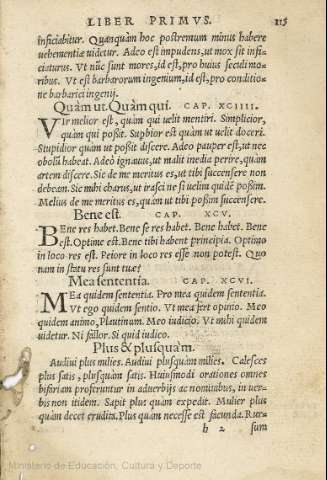 LIBER PRIMVS. 115
inficiabitur. Quanquàm hoc postremum minus habere
uehementiæ uidetur. Adeo est impudens, ut mox sit infi-
ciaturus. Vt nũc sunt mores, id est, pro huius seculi mo-
ribus. Vt est barbarorum ingenium, id est, pro conditio-
ne barbarici ingenij.
Quàm ut. Quàm qui. CAP. XCIIII.
VIr melior est, quàm qui uelit mentiri. Simplicior,
quàm qui possit. Supbior est quàm ut uelit doceri.
Stupidior quàm ut possit discere. Adeo pauper est, ut nec
obolũ habeat. Adeò ignauus, ut malit inedia perire, quàm
artem discere. Sic de me meritus es, ut tibi succensere non
debeam. Sic mihi charus, ut irasci ne si uelim quidẽ possim.
Melius de me meritus es, quàm ut tibi possim succensere.
Bene est. CAP. XCV.
BEne res habet. Bene se res habet. Bene habet. Bene
est. Optime est. Bene tibi habent principia. Optimo
in loco res est. Peiore in loco res esse non potest. Quo
nam in statu res sunt tuæ?
Mea sententia. CAP. XCVI.
MEa quidem sententia. Pro mea quidem sententia.
Vt ego quidem sentio. Vt mea fert opinio. Meo
quidem animo, Plautinum. Meo iudicio. Vt mihi quidem
uidetur. Ni fallor. Si quid iudico.
Plus & plusquàm.
Audiui plus milies. Audiui plusquàm milies. Calesces
plus satis, plusquàm satis. Huiusmodi orationes omnes
bifariam proferuntur in aduerbijs ac nominibus, in uer-
bis non itidem. Sapit plus quàm expedit. Mulier plus
quàm decet erudita. Plus quàm necesse est facunda. Rur-
h 2 sum
Ministerio de Educación, Cultura y Deporte